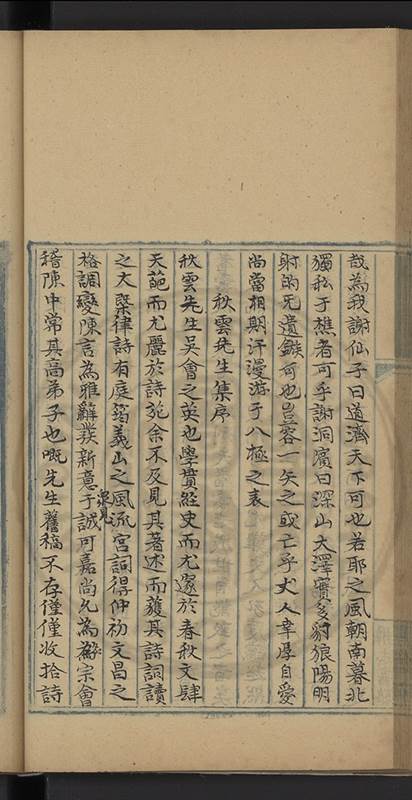 哉為我謝仙子曰道濟天下可也若耶之風朝南暮北
獨私于樵者可乎謝洞賓曰深山大澤實多豺狼陽明
射的无遺鏃可也豈容一矢之或亡乎丈人幸厚自愛
尚當相期汗漫游于八極之表
秋雲先生集序
秋雲先生吳會之英也學貫經史而尤邃於春秋文肆
天葩而尤麗於詩詞余不及見其著述而獲其詩詞讀
之大槩律詩有庭筠義山之風流宮詞得仲初文昌之
格調變陳言為雅辭發新意于衆見誠可嘉尚允為宗會
稽陳中常其高弟子也嘅先生舊稿不存僅僅收拾詩